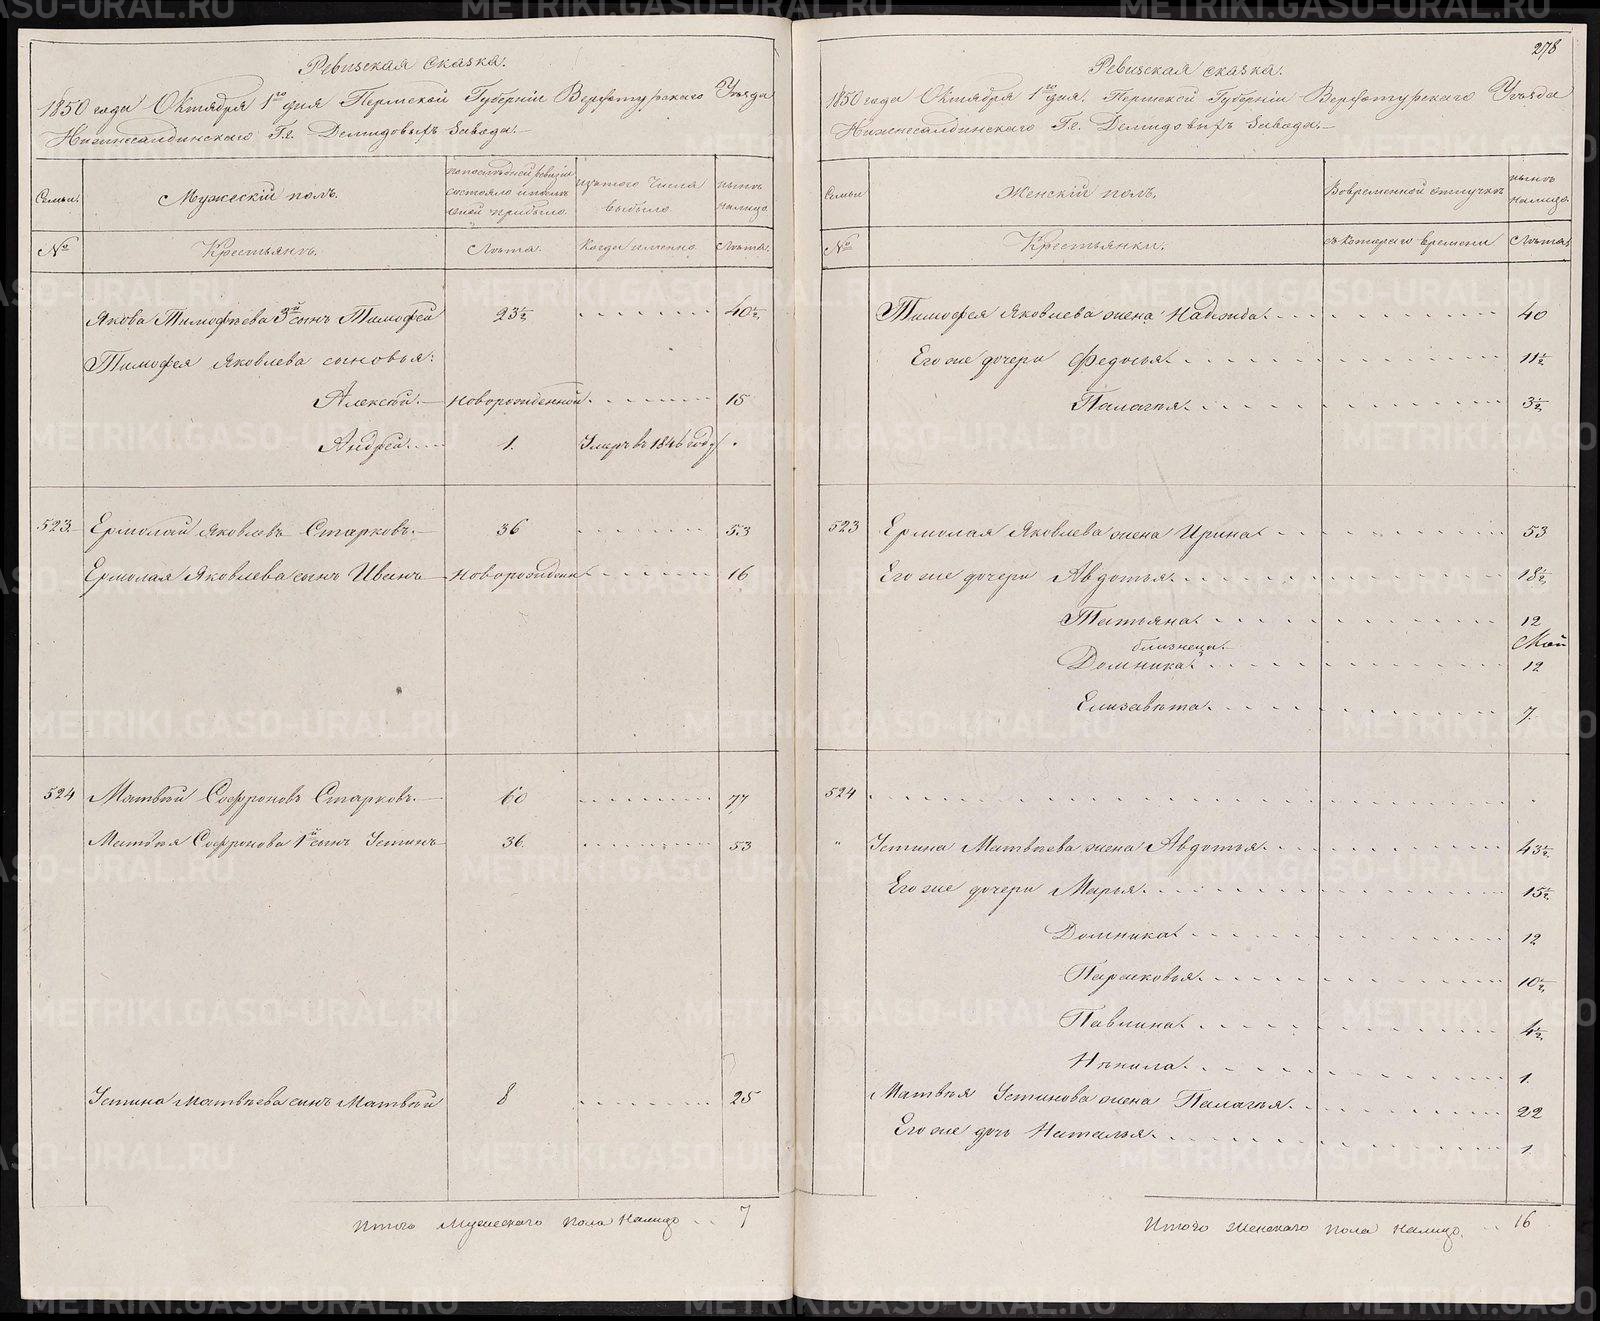 Ревизская сказка.
1850 года Октября 1го дня Пермской Губернiи Верхотурскаго Уѣзда
Нижнесалдинскаго Гг. Демидовыхъ Завода.
Семьи.
Мужескiй полъ.
по послѣдней ревизiи
состояло и послѣ
оной прибыло.
изъ того числа
выбыло
нынѣ
налицо.
№
Крестьянъ.
Лѣта.
Когда именно.
Лѣта.
Якова Тимофѣева 3й сынъ Тимофей 23½ 40½
Тимофея Яковлева сыновья:
Алексѣй. Новорожденной 15
Андрей. 1. Умеръ въ 1846 году
523. Ермолай Яковлевъ Старковъ. 36 53
Ермолая Яковлева сынъ Иванъ Новорожден 16
524 Матвѣй Софроновъ Старковъ. 60 77
Матвѣя Софронова 1й сынъ Устинъ 36. 53
Устина Матвѣева сынъ Матвѣй 8 25
Итого Мужескаго пола налицо 7
278
Ревизская сказка.
1850 года Октября 1го дня. Пермской Губернiи Верхотурскаго Уѣзда
Нижнесалдинскаго Гг. Демидовыхъ Завода.
Семьи
Женскiй полъ.
Во временной отлучкѣ
нынѣ
налицо.
№
Крестьянки.
съ котораго времени
Лѣта
Тимофея Яковлева жена Надежда. 40
Его же дочери Федосья. 11½
Палагѣя. 3½
523 Ермолая Яковлева жена Ирина 53
Его же дочери Авдотья. 18½
Татьяна. 12
близнеца.
Домника. 12
Елизавѣта. 7.
524
" Устина Матвѣева жена Авдотья. 43½
Его же дочери Марья. 15½
Домника 12
Парасковья. 10½
Павлина. 4½
Нѣнила. 1.
Матвѣя Устинова жена Палагѣя. 22
Его же дочь Наталья. 1.
Итого женскаго пола налицо. 16
METRIKI.GASO-URAL.RU